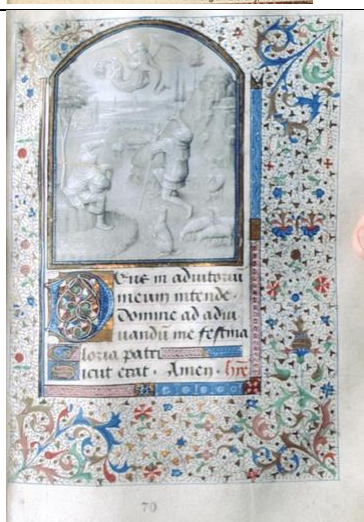 Deus in adiutoriū
meum intende.
Domine ad adiu
uandū me festina
Gloria patri
Sicut erat. Amen. hye
70